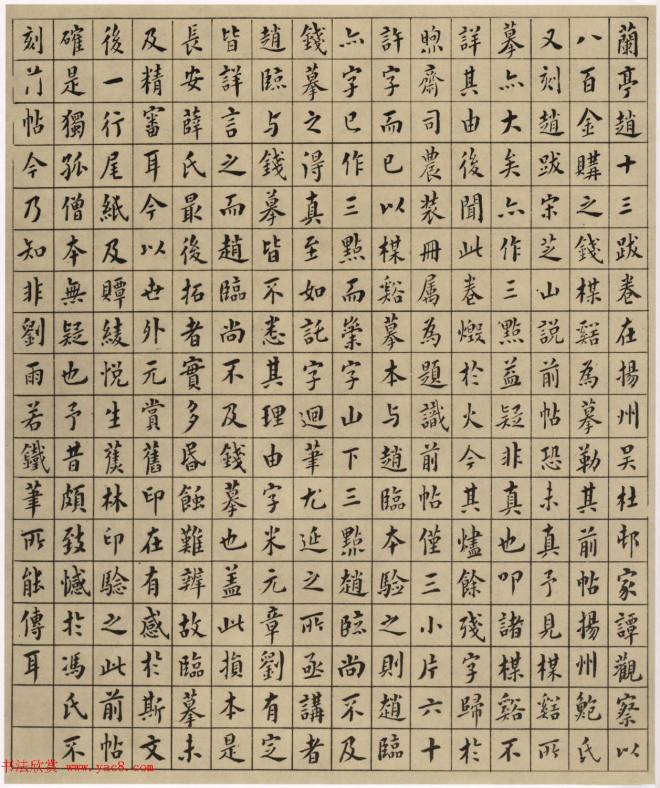 蘭亭趙十三跋卷在揚州吴杜邨家譚觀察以
八百金購之錢楳谿為摹勒其前帖揚州鮑氏
又刻趙跋宋芝山說前帖恐未真予見楳谿所
摹亦大矣亦作三點益疑非真也叩諸楳谿不
詳其由後聞此卷燬於火今其燼餘殘字歸於
煦齋司農装冊属為題識前帖僅三小片六十
許字而已以楳谿摹本与趙臨本驗之則趙臨
亦字已作三點而崇字山下三點趙臨尚不及
錢摹之得真至如託字迴筆尤延之所亟講者
趙臨与錢摹皆不悉其理由字米元章劉有定
皆詳言之而趙臨尚不及錢摹也盖此損本是
長安薛氏最後拓者實多昬蝕難辨故臨摹未
及精審耳今以世外元賞舊印在有感於斯文
後一行尾紙及贉綾悅生蕉林印驗之此前帖
確是獨孤僧本無疑也予昔頗致憾於馮氏不
刻前帖今乃知非劉雨若鐵筆所能傳耳
书法欣赏 www.yac8.com